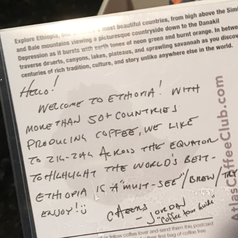 Explore Ethiopia, one of the most beautiful countries, from high above the Simien
and Bale mountains viewing a picturesque countryside down to the Danakil
Depression as it bursts with earth tones of neon green and burnt orange. In between
traverse deserts, canyons, lakes, plateaus, and sprawling savannah as you discover
centuries of rich tradition, culture, and story unlike anywhere else in the world.
Hello!
WELCOME TO ETHIOPIA! WITH
MORE THAN 50+ COUNTRIES
PRODUCING COFFEE, WE LIKE
TO ZIG-ZAG ACROSS THE EQUATOR
TO HIGHLIGHT THE WORLD'S BEST.
ETHIOPIA IS A "MUST-SEE"/
ENJOY!!
CHEERS, JORDAN
"Coffee Tour Guide"
AtlasCoffeeClub.com
a fellow coffee lover and send them this postcard
first bag of coffee free